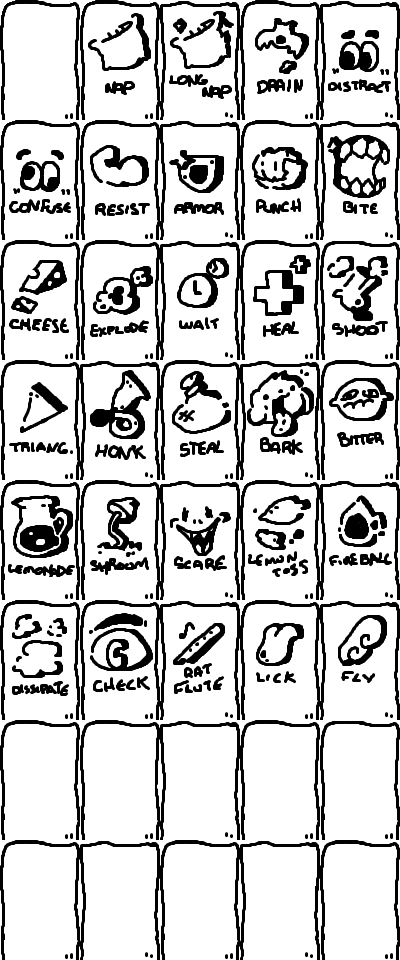 NAP
LONG
NAP
DRAIN
DISTRACT
CONFUSE
RESIST
ARMOR
PUNCH
BITE
CHEESE
EXPLODE
WAIT
HEAL
SHOOT
TRIANG.
HONK
STEAL
BARK
BITTER
LEMONADE
SHROOM
SCARE
LEMON
TOSS
FIREBALL
DISSIPATE
CHECK
RAT
FLUTE
LICK
FLY